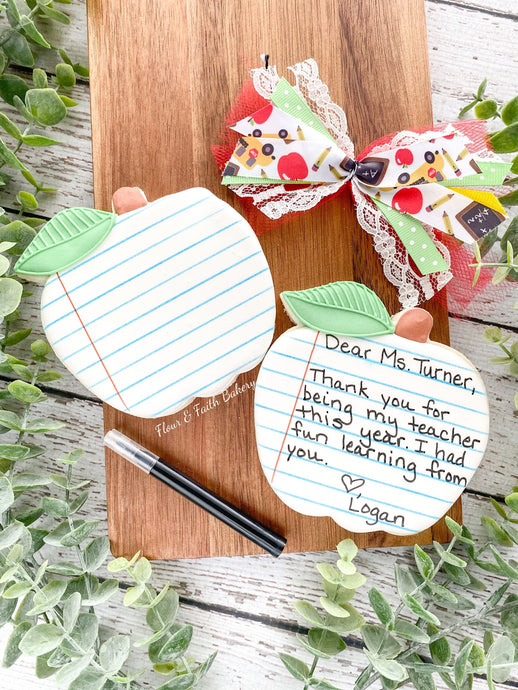 Flour & Faith Bakery
Dear Ms. Turner,
Thank you for
being my teacher
this year. I had
fun learning from
you.
♡,
Logan